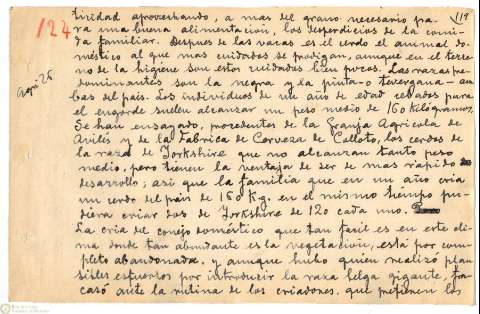 124
119
agri 26
tinidad aprovechando, a mas del grano necesario pa-
ra una buena alimentacion, los desperdicios de la comi-
da familiar. Despues de las vacas es el cerdo el animal do-
méstico al que mas cuidados se prodigan, aunque en el terre-
no de la higiene son estos cuidados bien pocos. Las razas pre-
dominantes son la negra y la pinta o tevergana — am-
bas del pais. Los individuos de un año de edad cebados para
el engorde suelen alcanzar un peso medio de 160 kilógramos.
Se han ensayado, procedentes de la Granja Agricola de
Avilés y de la Fabrica de Cerveza de Colloto, los cerdos de
la raza de Yorkshire que no alcanzan tanto peso
medio, pero tienen la ventaja de ser de mas rapido
desarrollo; asi que la familia que en un año cria
un cerdo del pais de 160 Kg. en el mismo tiempo pu-
diera criar dos de Yorkshire de 120 cada uno.
La cria del conejo doméstico que tan facil es en este cli-
ma donde tan abundante es la vegetacion, está por com-
pleto abandonada, y aunque hubo quien realizó plau-
sibles esfuerzos por introducir la raza belga gigante, fra-
casó ante la rutina de los criadores, que prefieren los